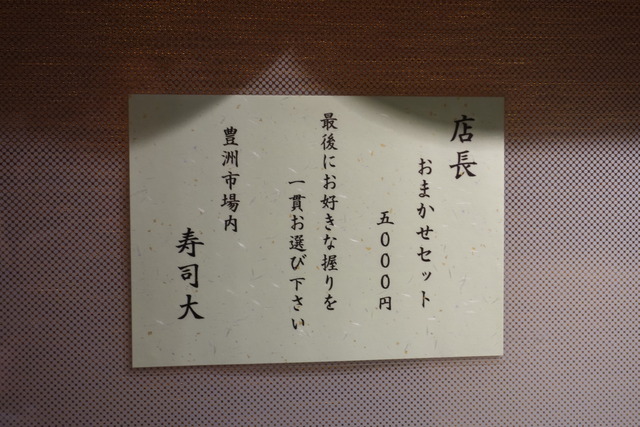 店長
おまかせセット
五〇〇〇円
最後にお好きな握りを
一貫お選び下さい
豊洲市場内
寿司大